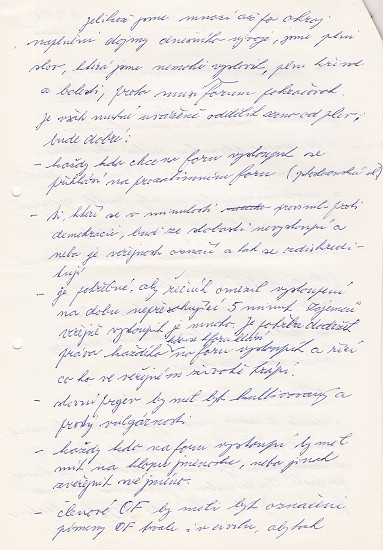 jelikož jsme mnozí až po okraj
naplněni dojmy dnešního vývoje, jsme plni
slov, která jsme nemohli vyslovit, plni křivd
a bolesti, proto musí Fórum pokračovat.
Je však nutné uváženě oddělit zrno od plev,
bude dobré:
- každý kdo chce na foru vystoupit se
přihlásí na prozatimnímu foru
- ti, kteří se v minulosti provinili proti
demokracii, buď ze slabosti nevystoupí a
nebo je veřejnost označí a tak se zdiskredi-
tují
- je potřebné, aby řečník omezil vystoupení
na dobu nepřesahující 5 minut. Zájemců
veřejně vystoupit je mnoho. Je potřeba dodržet
práva každého na foru vystoupit a říci
co ho ve veřejném životě trápí.
- slovní projev by měl být kultivovaný a
prostý vulgárností
- každý kdo na foru vystoupí by měl
mít na klopě jmenovku, nebo jinak
zveřejnit své jméno.
- členové OF by měli být označeni
písmeny OF trvale i v civilu, aby tak